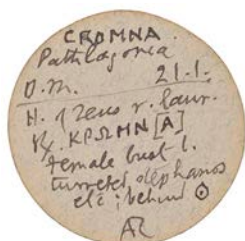 CROMNA
Pathlagonia
O.M. 21.1.
H. of Zeus r. laur.
R/. ΚΡΩΜΝ[Α]
female bust l.
turreted stephanos
etc; behind ⊙
Æ